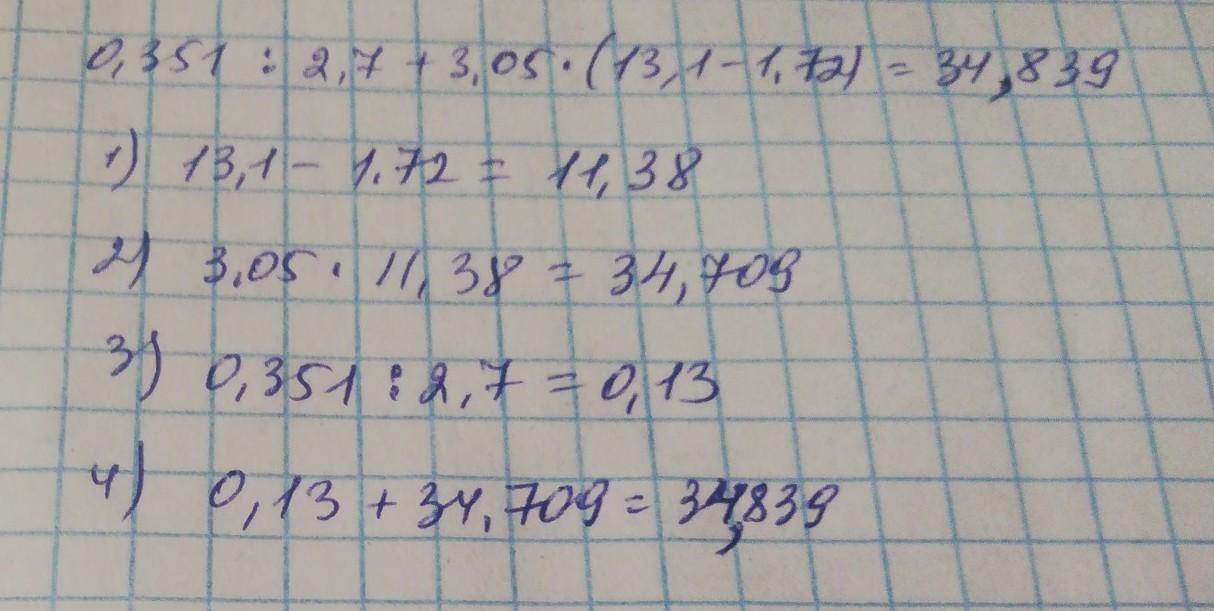 0,351 : 2,7 + 3,05 · (13,1 - 1.72) = 34,839
1) 13,1 - 1.72 = 11,38
2) 3.05 · 11,38 = 34,709
3) 0,351 : 2,7 = 0,13
4) 0,13 + 34,709 = 34,839